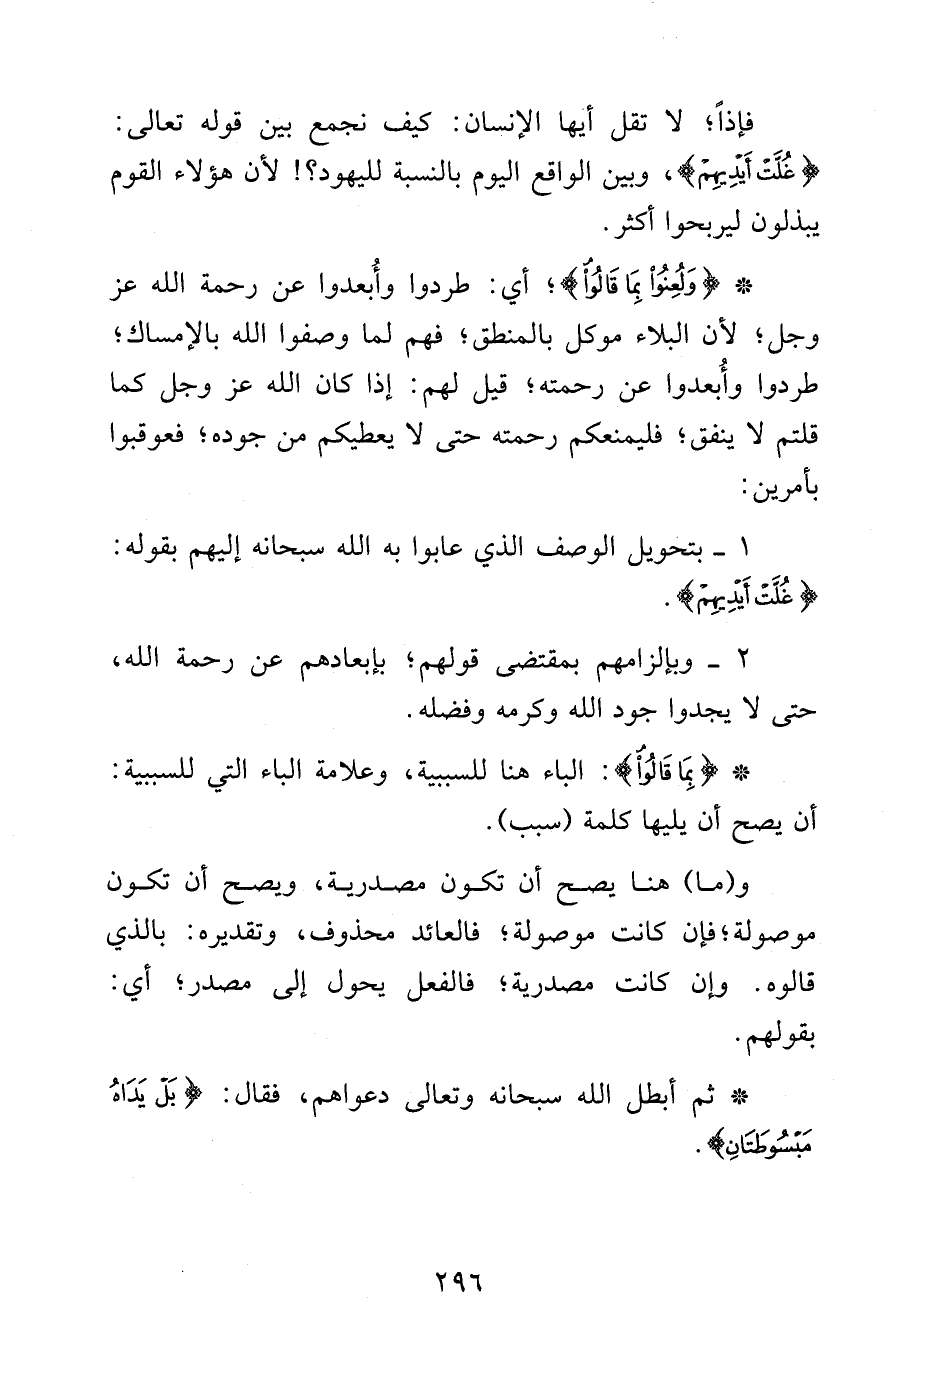 فإذاً؛ لا تقل أيها الإنسان: كيف نجمع بين قوله تعالى:
﴿غُلَّتْ أَيْدِيهِمْ﴾، وبين الواقع اليوم بالنسبة لليهود؟! لأن هؤلاء القوم
يبذلون ليربحوا أكثر.
* ﴿وَلُعِنُوا۟ بِمَا قَالُوا۟ۘ﴾؛ أي: طردوا وأُبعدوا عن رحمة الله عز
وجل؛ لأن البلاء موكل بالمنطق؛ فهم لما وصفوا الله بالإمساك؛
طردوا وأُبعدوا عن رحمته؛ قيل لهم: إذا كان الله عز وجل كما
قلتم لا ينفق؛ فليمنعكم رحمته حتى لا يعطيكم من جوده؛ فعوقبوا
بأمرين:
١ ـ بتحويل الوصف الذي عابوا به الله سبحانه إليهم بقوله:
﴿غُلَّتْ أَيْدِيهِمْ﴾.
٢ ـ وبإلزامهم بمقتضى قولهم؛ بإبعادهم عن رحمة الله،
حتى لا يجدوا جود الله وكرمه وفضله.
* ﴿بِمَا قَالُوا۟ۘ﴾: الباء هنا للسببية، وعلامة الباء التي للسببية:
أن يصح أن يليها كلمة (سبب).
و(ما) هنا يصح أن تكون مصدرية، ويصح أن تكون
موصولة؛ فإن كانت موصولة؛ فالعائد محذوف، وتقديره: بالذي
قالوه. وإن كانت مصدرية؛ فالفعل يحول إلى مصدر؛ أي:
بقولهم.
* ثم أبطل الله سبحانه وتعالى دعواهم، فقال: ﴿بَلْ يَدَاهُ
مَبْسُوطَتَانِ﴾.
٢٩٦